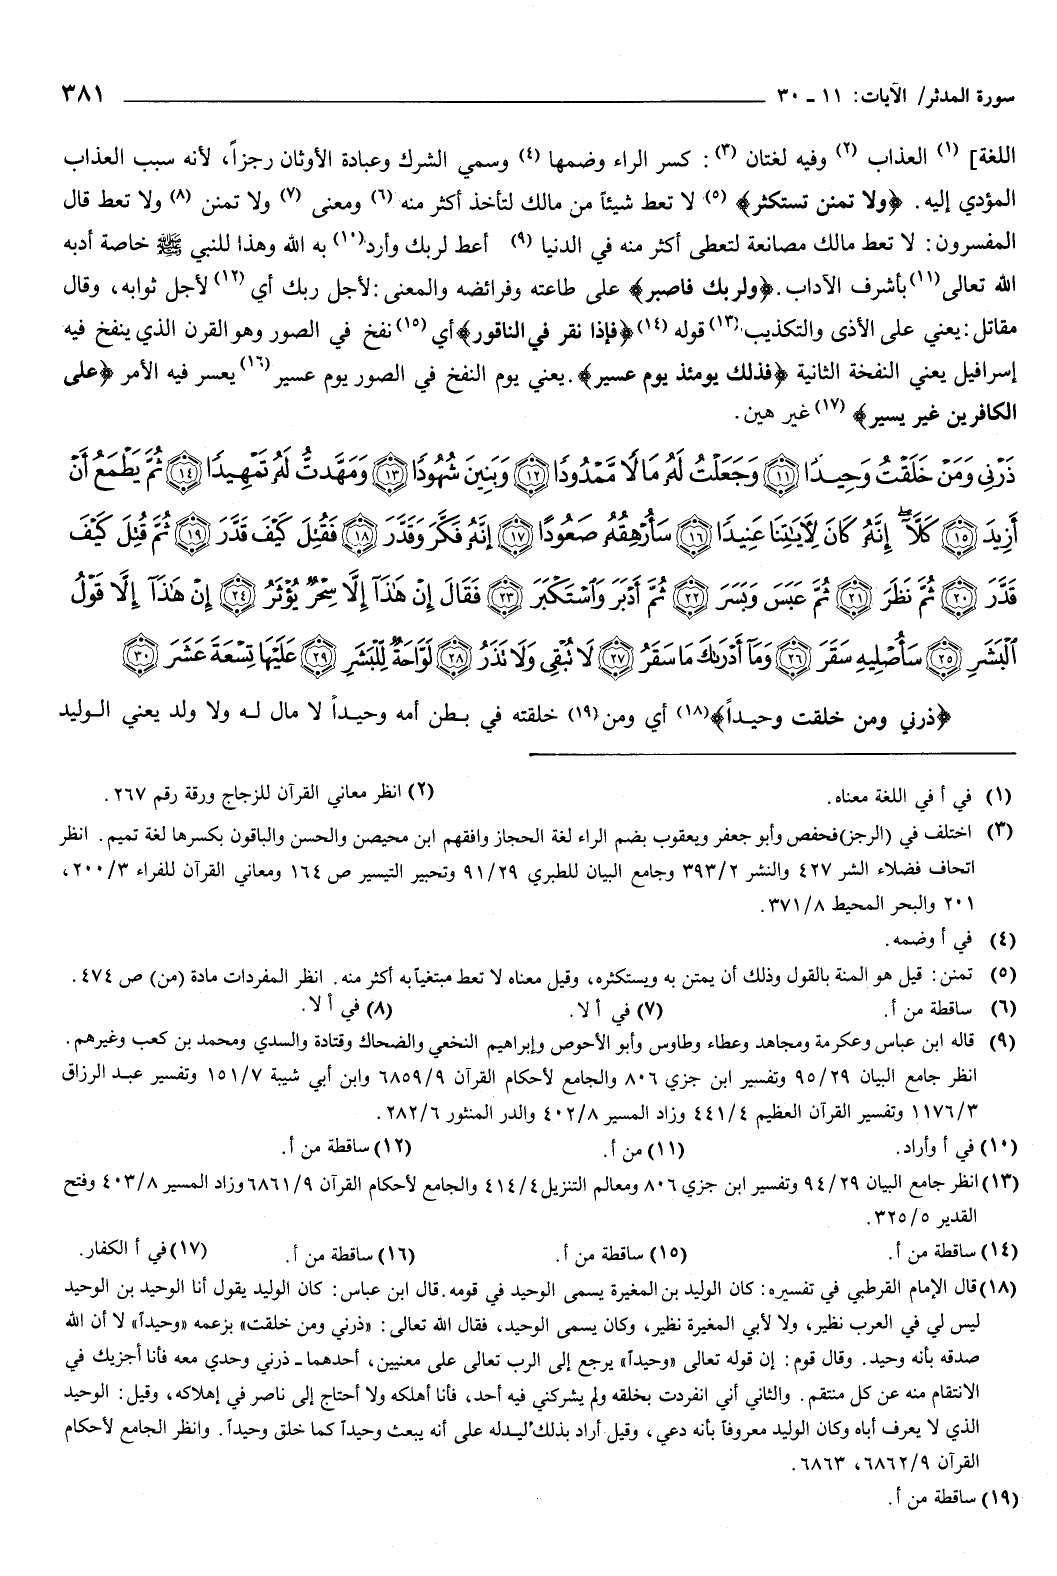 سورة المدثر/ الآيات: ١١ ـ ٣٠ ٣٨١
اللغة] (١) العذاب (٢) وفيه لغتان (٣): كسر الراء وضمها (٤) وسمي الشرك وعبادة الأوثان رجزاً، لأنه سبب العذاب
المؤدي إليه. ﴿ولا تمنن تستكثر﴾ (٥) لا تعط شيئاً من مالك لتأخذ أكثر منه (٦) ومعنى (٧) ولا تمنن (٨) ولا تعط قال
المفسرون: لا تعط مالك مصانعة لتعطى أكثر منه في الدنيا (٩) أعط لربك وأرد(١٠) به الله وهذا للنبي ﷺ خاصة أدبه
الله تعالى(١١)بأشرف الآداب.﴿ولربك فاصبر﴾ على طاعته وفرائضه والمعنى:لأجل ربك أي (١٢)لأجل ثوابه، وقال
مقاتل:يعني على الأذى والتكذيب.(١٣)قوله (١٤)﴿فإذا نقر في الناقور﴾أي (١٥)نفخ في الصور وهو القرن الذي ينفخ فيه
إسرافيل يعني النفخة الثانية ﴿فذلك يومئذ يوم عسير﴾.يعني يوم النفخ في الصور يوم عسير (١٦)يعسر فيه الأمر ﴿على
الكافرين غير يسير﴾ (١٧) غير هين.
ذَرْنِي وَمَنْ خَلَقْتُ وَحِيدًا ١١ وَجَعَلْتُ لَهُ مَالًا مَّمْدُودًا ١٢ وَبَنِينَ شُهُودًا ١٣ وَمَهَّدتُّ لَهُ تَمْهِيدًا ١٤ ثُمَّ يَطْمَعُ أَنْ
أَزِيدَ ١٥ كَلَّا ۖ إِنَّهُ كَانَ لِآيَاتِنَا عَنِيدًا ١٦ سَأُرْهِقُهُ صَعُودًا ١٧ إِنَّهُ فَكَّرَ وَقَدَّرَ ١٨ فَقُتِلَ كَيْفَ قَدَّرَ ١٩ ثُمَّ قُتِلَ كَيْفَ
قَدَّرَ ٢٠ ثُمَّ نَظَرَ ٢١ ثُمَّ عَبَسَ وَبَسَرَ ٢٢ ثُمَّ أَدْبَرَ وَاسْتَكْبَرَ ٢٣ فَقَالَ إِنْ هَٰذَا إِلَّا سِحْرٌ يُؤْثَرُ ٢٤ إِنْ هَٰذَا إِلَّا قَوْلُ
الْبَشَرِ ٢٥ سَأُصْلِيهِ سَقَرَ ٢٦ وَمَا أَدْرَاكَ مَا سَقَرُ ٢٧ لَا تُبْقِي وَلَا تَذَرُ ٢٨ لَوَّاحَةٌ لِّلْبَشَرِ ٢٩ عَلَيْهَا تِسْعَةَ عَشَرَ ٣٠
﴿ذرني ومن خلقت وحيداً﴾(١٨) أي ومن(١٩) خلقته في بطن أمه وحيداً لا مال له ولا ولد يعني الوليد
(١) في أ في اللغة معناه. (٢) انظر معاني القرآن للزجاج ورقة رقم ٢٦٧.
(٣) اختلف في (الرجز)فحفص وأبو جعفر ويعقوب بضم الراء لغة الحجاز وافقهم ابن محيصن والحسن والباقون بكسرها لغة تميم. انظر
اتحاف فضلاء الشر ٤٢٧ والنشر ٣٩٣/٢ وجامع البيان للطبري ٩١/٢٩ وتحبير التيسير ص ١٦٤ ومعاني القرآن للفراء ٢٠٠/٣،
٢٠١ والبحر المحيط ٣٧١/٨.
(٤) في أ وضمه.
(٥) تمنن: قيل هو المنة بالقول وذلك أن يمتن به ويستكثره، وقيل معناه لا تعط مبتغياً به أكثر منه. انظر المفردات مادة (من) ص ٤٧٤.
(٦) ساقطة من أ. (٧) في أ لا. (٨) في أ لا.
(٩) قاله ابن عباس وعكرمة ومجاهد وعطاء وطاوس وأبو الأحوص وإبراهيم النخعي والضحاك وقتادة والسدي ومحمد بن كعب وغيرهم.
انظر جامع البيان ٩٥/٢٩ وتفسير ابن جزي ٨٠٦ والجامع لأحكام القرآن ٦٨٥٩/٩ وابن أبي شيبة ١٥١/٧ وتفسير عبد الرزاق
١١٧٦/٣ وتفسير القرآن العظيم ٤٤١/٤ وزاد المسير ٤٠٢/٨ والدر المنثور ٢٨٢/٦.
(١٠) في أ وأراد. (١١) من أ. (١٢) ساقطة من أ.
(١٣) انظر جامع البيان ٩٤/٢٩ وتفسير ابن جزي ٨٠٦ ومعالم التنزيل ٤١٤/٤ والجامع لأحكام القرآن ٦٨٦١/٩ وزاد المسير ٤٠٣/٨ وفتح
القدير ٣٢٥/٥.
(١٤) ساقطة من أ. (١٥) ساقطة من أ. (١٦) ساقطة من أ. (١٧) في أ الكفار.
(١٨) قال الإمام القرطبي في تفسيره: كان الوليد بن المغيرة يسمى الوحيد في قومه.قال ابن عباس: كان الوليد يقول أنا الوحيد بن الوحيد
ليس لي في العرب نظير، ولا لأبي المغيرة نظير، وكان يسمى الوحيد، فقال الله تعالى: «ذرني ومن خلقت» بزعمه «وحيداً» لا أن الله
صدقه بأنه وحيد. وقال قوم: إن قوله تعالى «وحيداً» يرجع إلى الرب تعالى على معنيين، أحدهما ـ ذرني وحدي معه فأنا أجزيك في
الانتقام منه عن كل منتقم. والثاني أني انفردت بخلقه ولم يشركني فيه أحد، فأنا أهلكه ولا أحتاج إلى ناصر في إهلاكه، وقيل: الوحيد
الذي لا يعرف أباه وكان الوليد معروفاً بأنه دعي، وقيل أراد بذلك ليدله على أنه يبعث وحيداً كما خلق وحيداً. وانظر الجامع لأحكام
القرآن ٦٨٦٢/٩، ٦٨٦٣.
(١٩) ساقطة من أ.